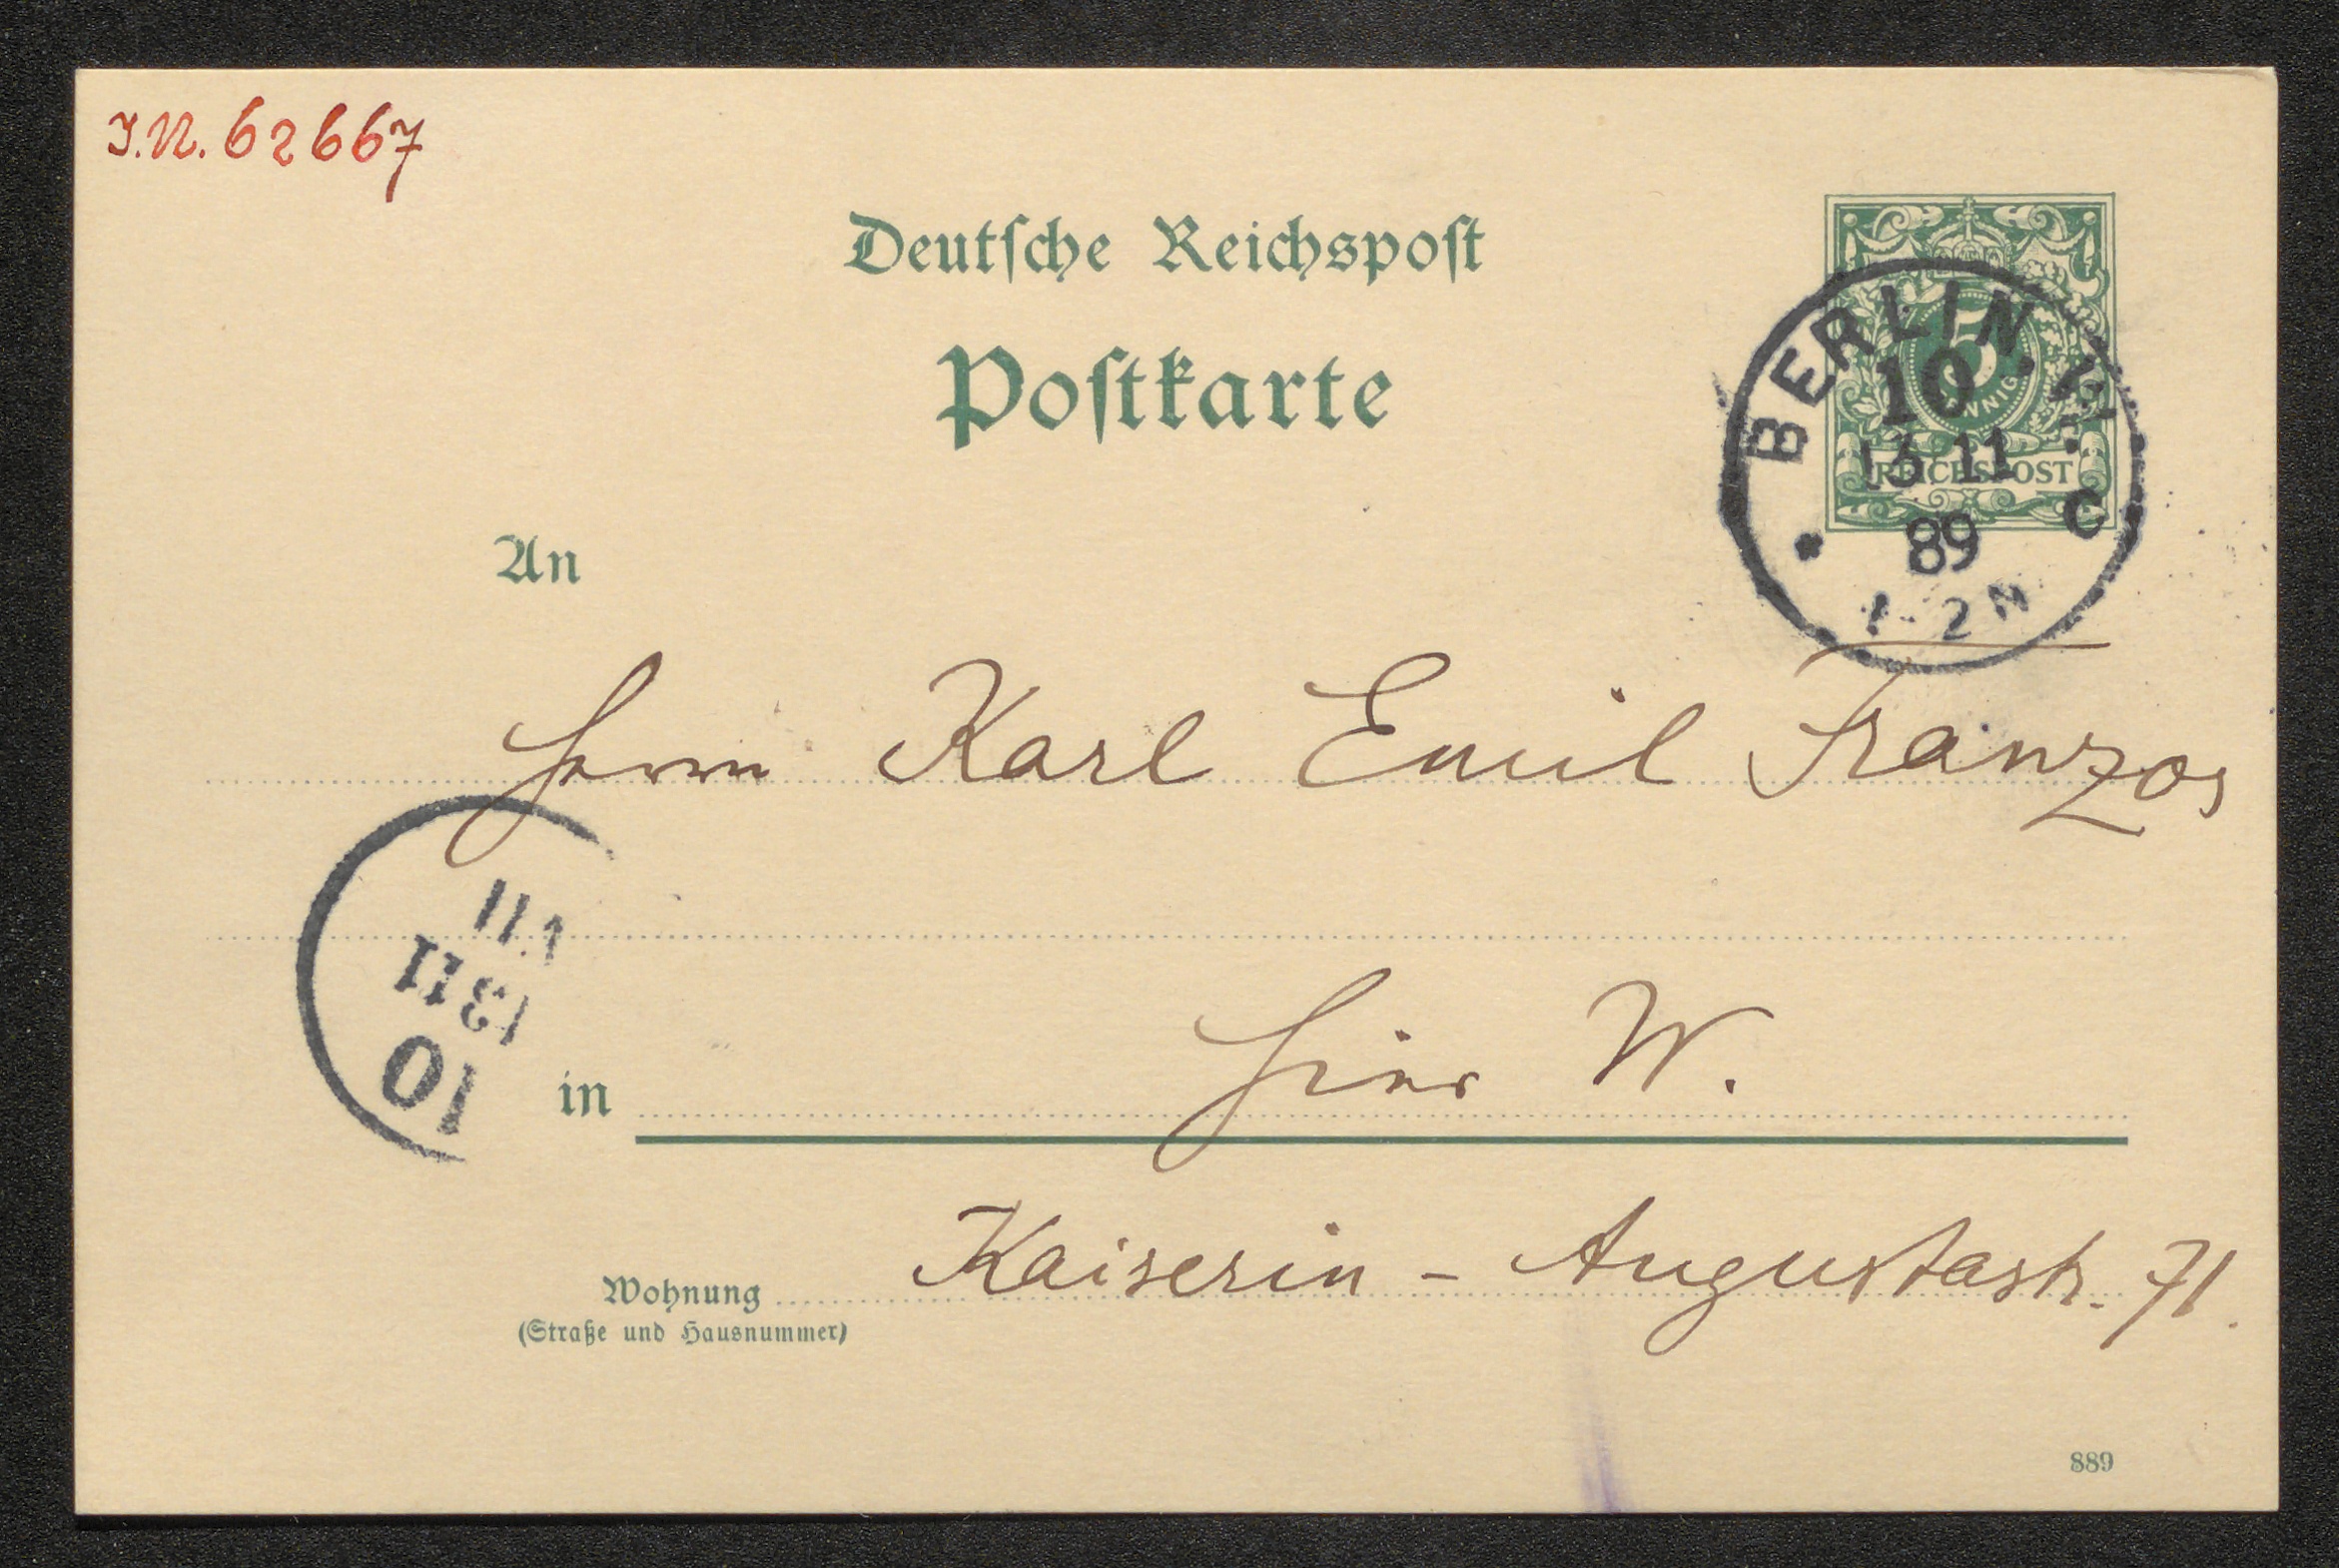 I.N. 62667
Deutsche Reichspost
Postkarte
5
PFENNIG
REICHSPOST
BERLIN, W.
10
13 11
89
1-2N
C
An
Herrn Karl Emil Franzos
13 11
10
in Hier W.
Wohnung Kaiserin-Augustastr. 71.
(Straße und Hausnummer)
889